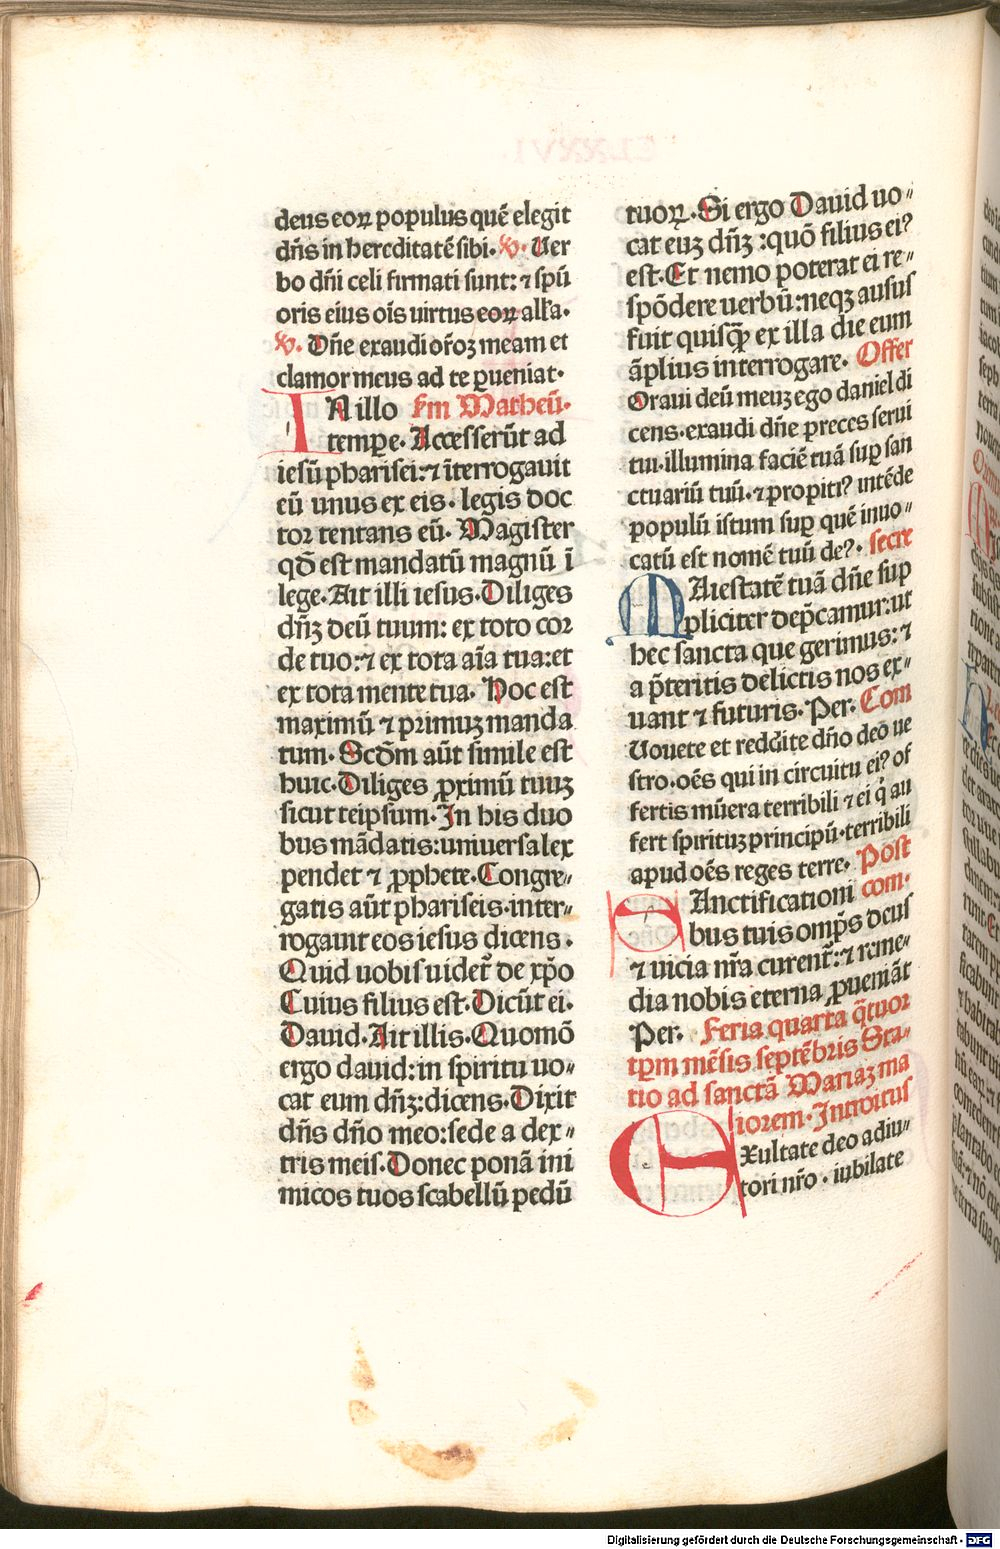 deus eoꝝ populus quē elegit
dn̄s in hereditatē sibi. ℣. Uer
bo dn̄i celi firmati sunt: ⁊ spū
oris eius oīs uirtus eoꝝ all'a.
℣. Dn̄e exaudi or̄oꝫ meam et
clamor meus ad te ꝑueniat.
IN illo fm Matheū.
tempꝛe. Accesserūt ad
iesū pharisei: ⁊ īterrogauit
eū unus ex eis. legis doc
toꝛ tentans eū. Magister
qđ est mandatū magnū ī
lege. Ait illi iesus. Diliges
dn̄ꝫ deū tuum: ex toto coꝛ
de tuo: ⁊ ex tota aīa tua: et
ex tota mente tua. Hoc est
maximū ⁊ primuꝫ manda
tum. Scđm aūt simile est
huic. Diliges ꝓximū tuuꝫ
sicut teipsum. In his duo
bus mādatis: uniuersa lex
pendet ⁊ ꝓphete. Congre⸗
gatis aūt phariseis. inter⸗
rogauit eos iesus dicens.
Quid uobis uidet̄ de xp̄o
Cuius filius est. Dicūt ei.
Dauid. Ait illis. Quomō
ergo dauid: in spiritu uo⸗
cat eum dn̄ꝫ: dicens. Dixit
dn̄s dn̄o meo: sede a dex⸗
tris meis. Donec ponā ini
micos tuos scabellū pedū
tuoꝝ. Si ergo Dauid uo⸗
cat euꝫ dn̄ꝫ: quō filius eiꝰ
est. Et nemo poterat ei re⸗
spōdere uerbū: neqꝫ ausus
fuit quisꝗ̄ ex illa die eum
āplius interrogare. Offer
Oraui deū meuꝫ ego daniel di
cens. exaudi dn̄e preces serui
tui. illumina faciē tuā suꝑ san
ctuariū tuū. ⁊ propitiꝰ intēde
populū istum suꝑ quē inuo⸗
catū est nomē tuū deꝰ. secre
MAiestatē tuā dn̄e sup
pliciter dep̄camur: ut
hec sancta que gerimus: ⁊
a p̄teritis delictis nos ex⸗
uant ⁊ futuris. Per. Com
Uouete et reddite dn̄o deo ue
stro. oēs qui in circuitu eiꝰ of
fertis mūera terribili ⁊ ei q̄ au
fert spirituꝫ principū. terribili
apud oēs reges terre. Post
SAnctificationi com.
bus tuis omp̄s deus
⁊ uicia nr̄a curent̄: ⁊ reme⸗
dia nobis eterna ꝓueniāt
Per. Feria quarta q̄tuor
tꝑm mēsis septēbris Sta⸗
tio ad sanctā Mariaꝫ ma
iorem. Introitus
EXultate deo adiu⸗
tori nr̄o. iubilate
Digitalisierung gefördert durch die Deutsche Forschungsgemeinschaft - DFG